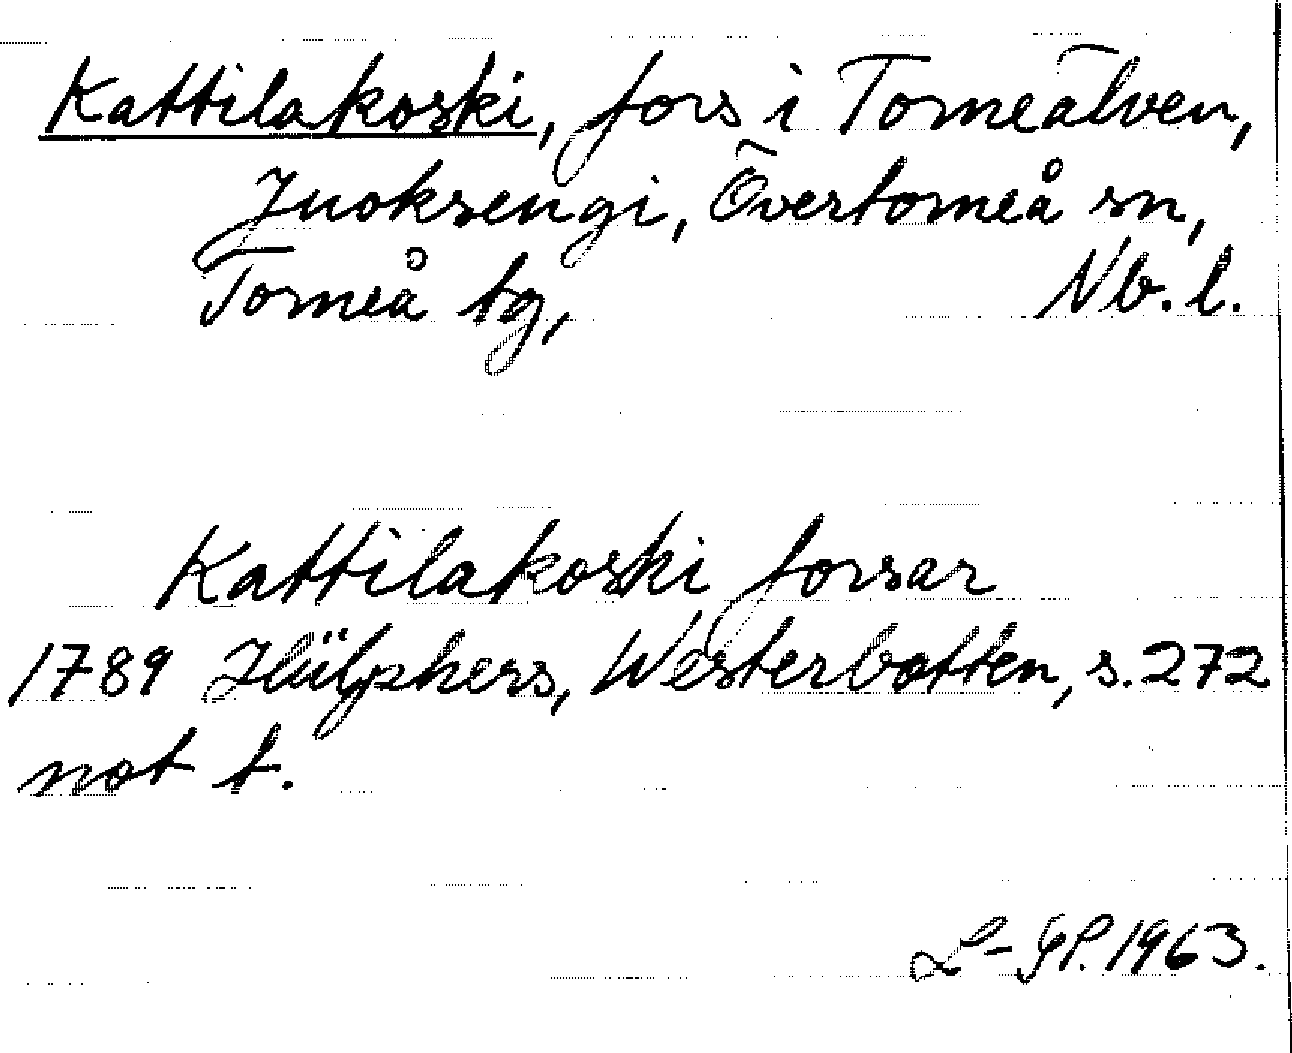 Kattilakoski, fors i Torneälven,
Juoksengi, Övertorneå sn,
Torneå tg, Nb. l.
Kattilakoski forsar
1789 Hülphers, Westerbotten, s. 272
not t.
L-GP. 1963.